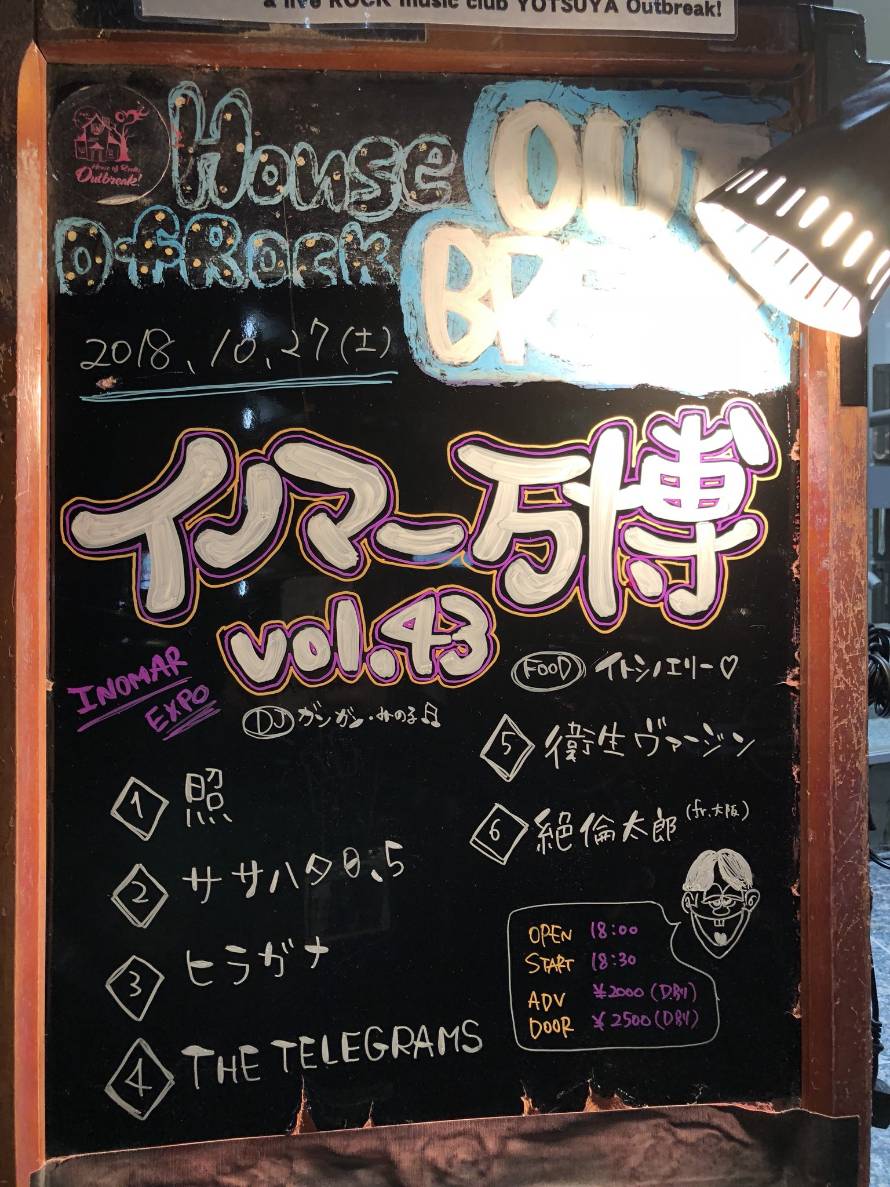 & live ROCK music club YOTSUYA Outbreak!
House of Rock
Outbreak!
House OUT
Of Rock BRE
2018、10、27(土)
イノマー万博
vol.43
INOMAR
EXPO
FOOD イトシノエリー♡
DJ ガンガン・みの子
1 照
2 ササハタ0、5
3 ヒラガナ
4 THE TELEGRAMS
5 衛生ヴァージン
6 絶倫太郎 (fr.大阪)
OPEN 18:00
START 18:30
ADV ¥2000(D別)
DOOR ¥2500(D別)